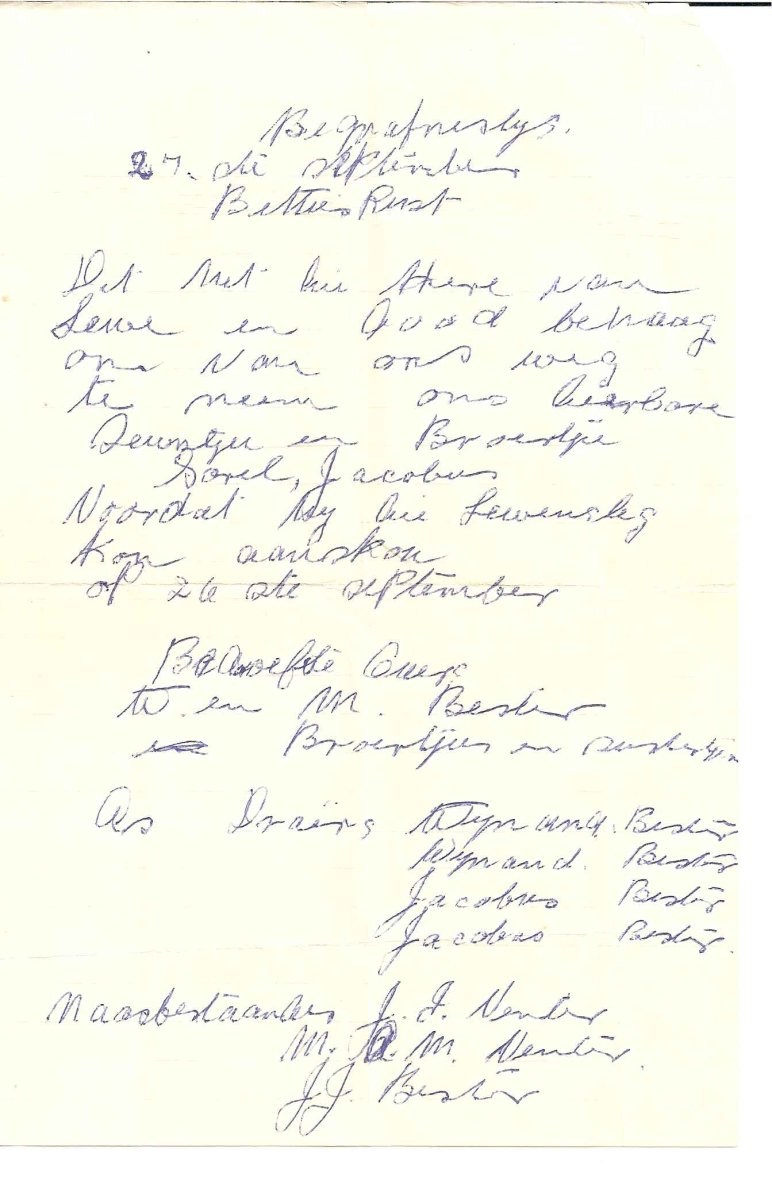 Begrafneslys.
27. ste september
Betties Rust
Dit Het die Here van
Lewe en Dood behaag
om van ons weg
te neem ons dierbare
Seuntjie en Broertjie
Sorel, Jacobus
Voordat hy die Lewenslig
kon aanskou
op 26 ste september
Beroefde Ouers
W. en M. Bester
Broertjies en sustertjies
As Draërs Wynand. Bester
Wynand. Bester
Jacobus Bester
Jacobus Bester.
Naasbestaandes J. J. Venter
M. M. Venter.
J.J. Bester